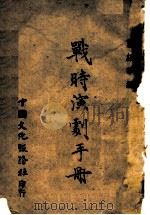 戰時演劇手冊
中國文化服務社印行